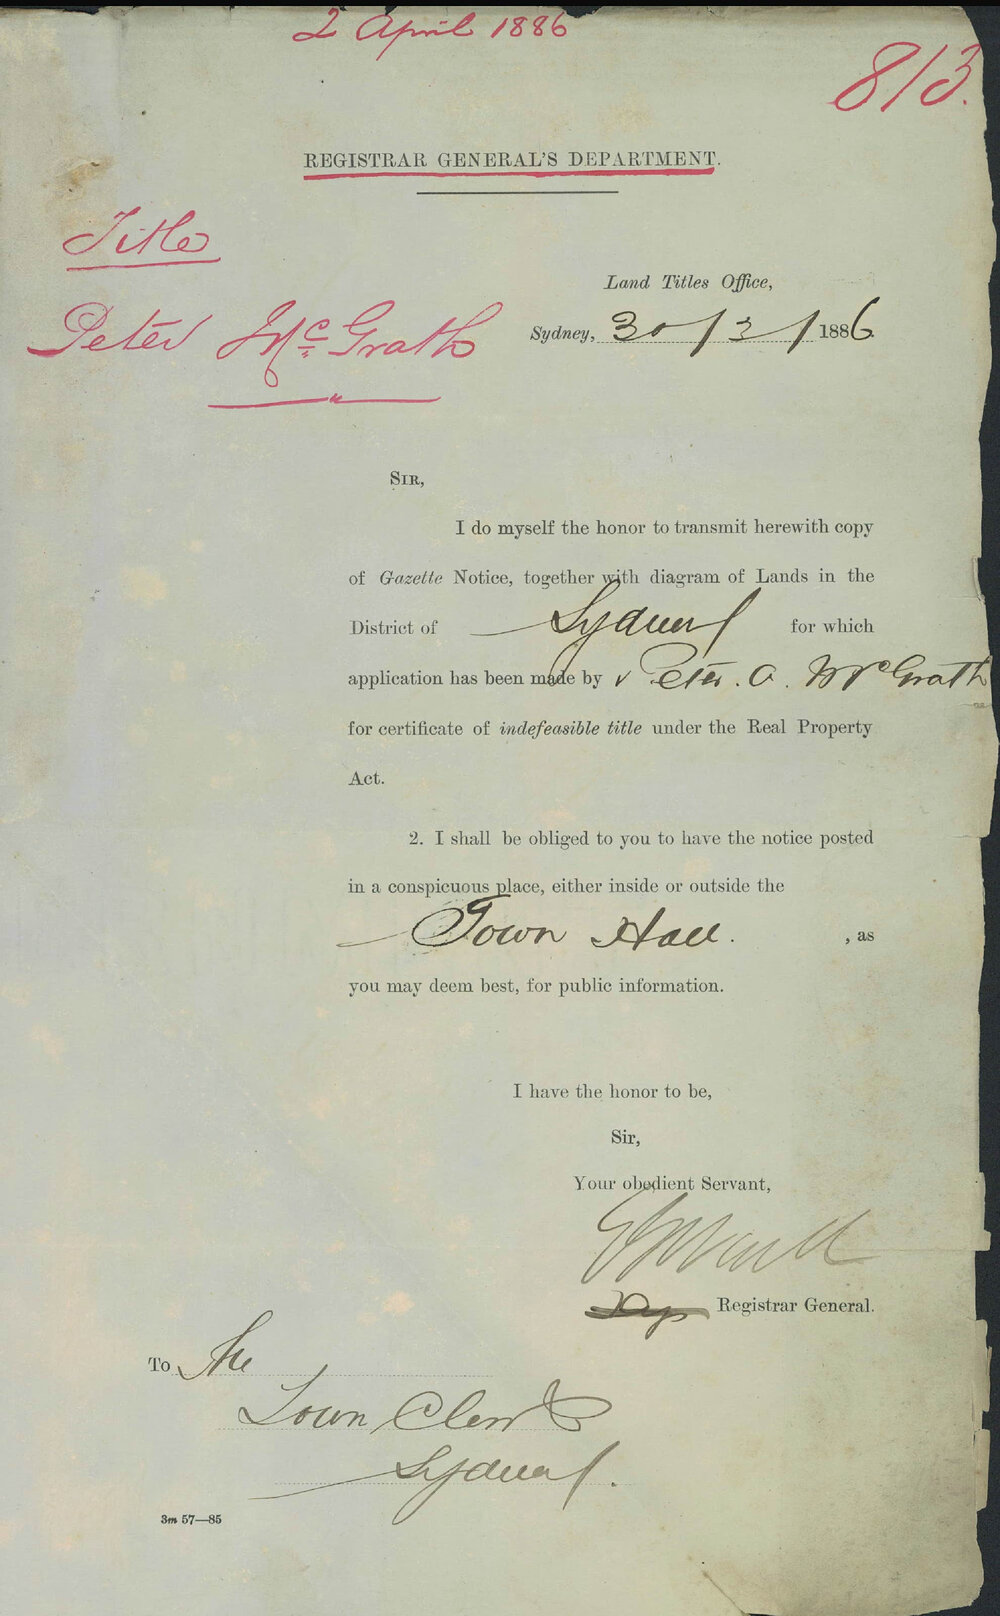 2 April 1886
813.
REGISTRAR GENERAL'S DEPARTMENT.
Title
Land Titles Office,
Peter McGrath
Sydney, 30/3/1886.
SIR,
I do myself the honor to transmit herewith copy
of Gazette Notice, together with diagram of Lands in the
District of Sydney for which
application has been made by Peter. A. McGrath
for certificate of indefeasible title under the Real Property
Act.
2. I shall be obliged to you to have the notice posted
in a conspicuous place, either inside or outside the
Town Hall. , as
you may deem best, for public information.
I have the honor to be,
Sir,
Your obedient Servant,
Registrar General.
To the
Town Clerk
Sydney.
3m 57—85